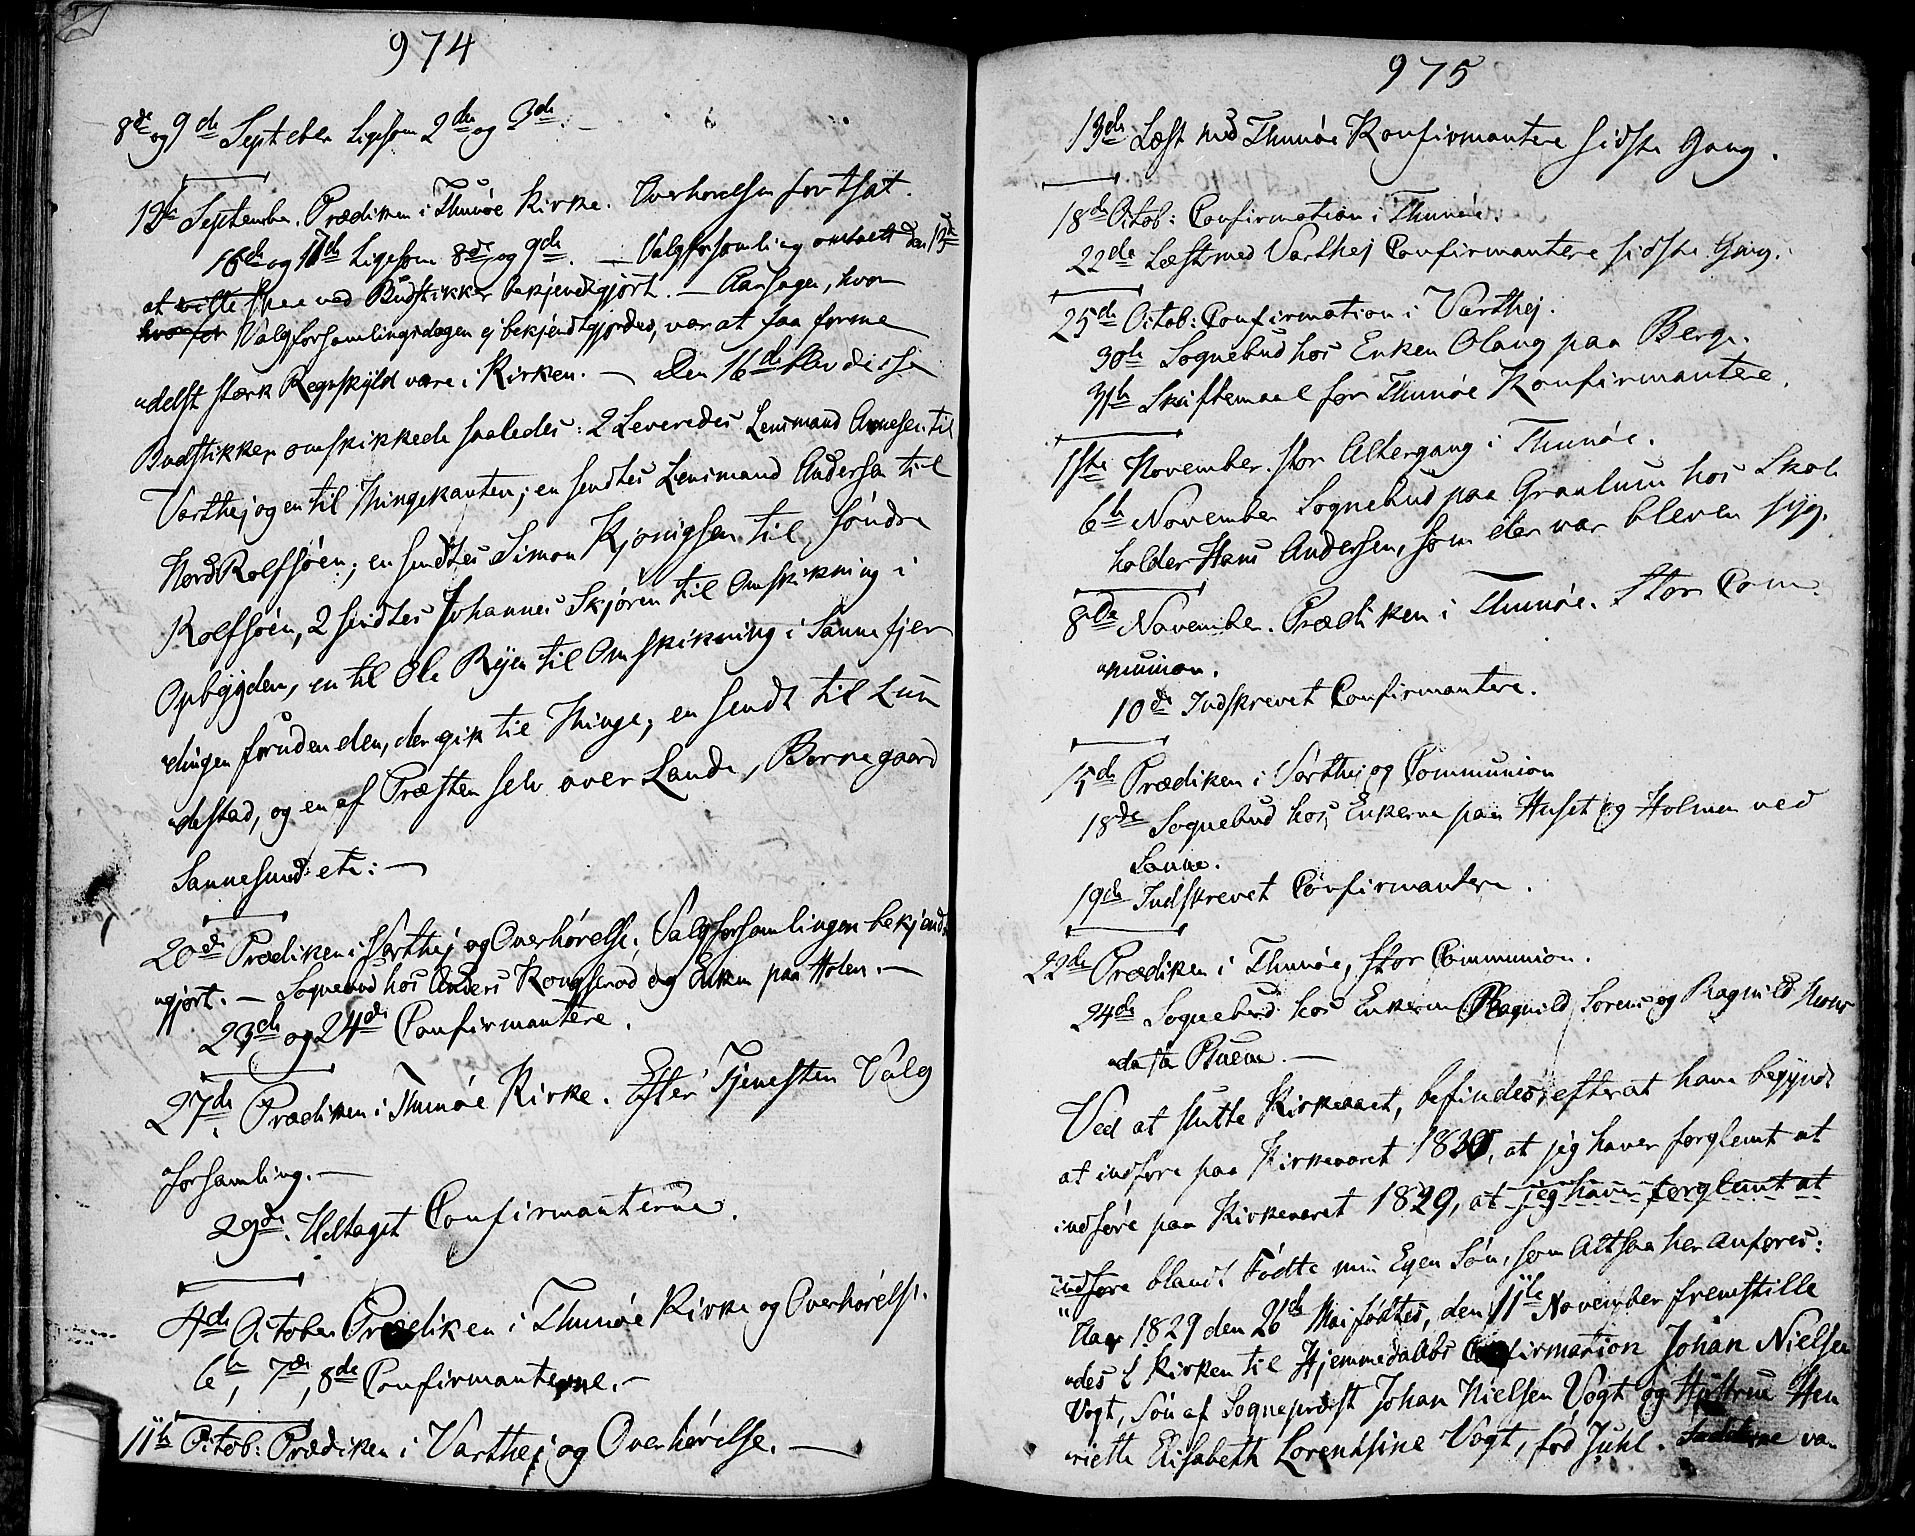 974
8de og 9de September ligesom 2den og 3die. –
13de September. Prædiken i Thunöe Kirke. Overhörelsen fortsat.
16de og 17de ligesom 8de og 9de. – Valgforsamling omtalt den 13de
at ville skee ved Budstikker bekjendtgjort. – Aarsagen, hvor
hvorfor Valgforsamlingsdagen ej bekjendtgjordes, var at faa forme
delst stærk Regnskyld vare i Kirken. – Den 16de blev disse
Budstikker omskikkede saaledes: 2 Leveredes Lensmand Arnesen til
Varthej og en til Thingekanten; en sendtes Lensmand Andersen til
Nord Rolfsöen; en sendtes Simon Kjönigsen til Söndre
Rolfsöen, 2 sendtes Johannes Skjören til Omskikning i
Opbygden, en til Ole Ryen til Omskikning i Sannefjer
dingen foruden den, der gik til Thinge; en sendt til Lun
destad, og en af Præsten selv over Lande, Borregaard
Sannesund etc: –
20de Prædiken i Varthej og Overhörelse. Valgforsamlingen bekjendt
gjort. – Sognebud hos Anders Kongsröd og Enken paa Holen. –
23de og 24de Confirmantere.
27de. Prædiken i Thunöe Kirke. Efter Tjenesten Valg
forsamling. –
29de. Udtaget Confirmanterne.
4de October Prædiken i Thunöe Kirke og Overhörelse.
6te, 7de, 8de Confirmanterne. –
11te Octob: Prædiken i Varthej og Overhörelse. –
975
13de Læst med Thunöe Konfirmantere sidste Gang.
18de Octob: Confirmation i Thunöe.
22de Læst med Varthej Confirmantere sidste Gang.
25de Octob: Confirmation i Varthej.
30te Sognebud hos Enken Olaug paa Berge.
31te Skriftemaal for Thunöe Konfirmantere.
1ste November. stor Altergang i Thunöe.
6te November Sognebud paa Graalum hos Skole
holder Hans Andersen, som der var bleven syg.
8de November. Prædiken i Thunöe. Stor Com
munion.
10de Indskrevet Confirmantere.
15de Prædiken i Varthej og Communion
18de Sognebud hos Enkerne paa Huset og Holmen ved
Sanne.
19de Indskrevet Confirmantere.
22de Prædiken i Thunöe, stor Communion.
24de Sognebud hos Enkerne Ragnild Sörens og Ragnild
Ved at slutte Kirkeaaret, befindes, efterat have begyndt
at indföre paa Kirkeaaret 1830, at jeg haver forglemt at
indföre paa Kirkeaaret 1829, at jeg haver forglemt at
indföre blandt Födte min Egen Sön, som altsaa her anföres:
"Aar 1829 den 26de Mai födtes, den 11te November fremstille
des i Kirken til Hjemmedaabs Confirmation Johan Nielsen
Vogt, Sön af Sognepræst Johan Nielsen Vogt og Hustrue Hen
riette Elisabeth Lorentsine Vogt, föd Juhl. Fadderne var